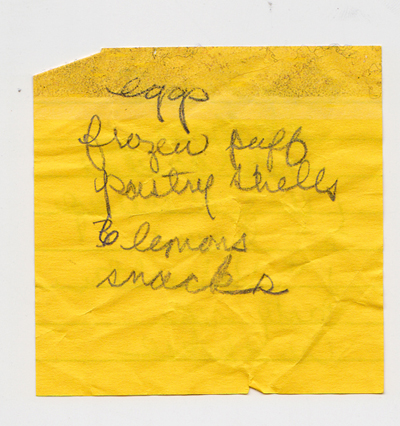 eggs
frozen puff
pastry shells
6 lemons
snacks